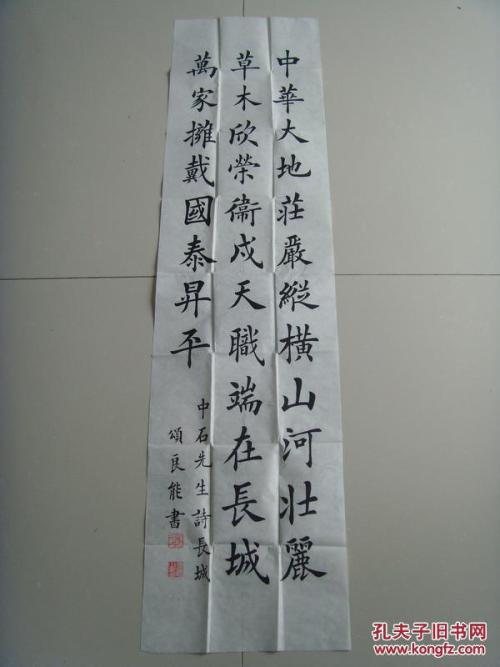 中華大地莊嚴縱橫山河壯麗
草木欣榮衞戍天職端在長城
萬家擁戴國泰昇平
中石先生詩長城
頌良能書
孔夫子旧书网
www.kongfz.com